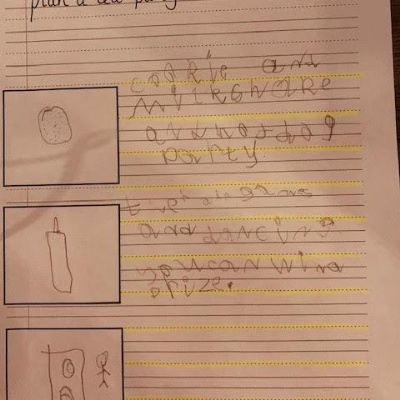 plan a tea party
cookie and
milkshake
and hotdog
party.
ther are games
and dancing
you can win a
prize.